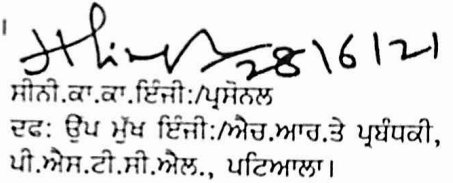 28/6/21
ਸੀਨੀ.ਕਾ.ਕਾ.ਇੰਜੀ:/ਪ੍ਰਸੋਨਲ
ਦਫ: ਉਪ ਮੁੱਖ ਇੰਜੀ:/ਐਚ.ਆਰ.ਤੇ ਪ੍ਰਬੰਧਕੀ,
ਪੀ.ਐਸ.ਟੀ.ਸੀ.ਐਲ., ਪਟਿਆਲਾ।